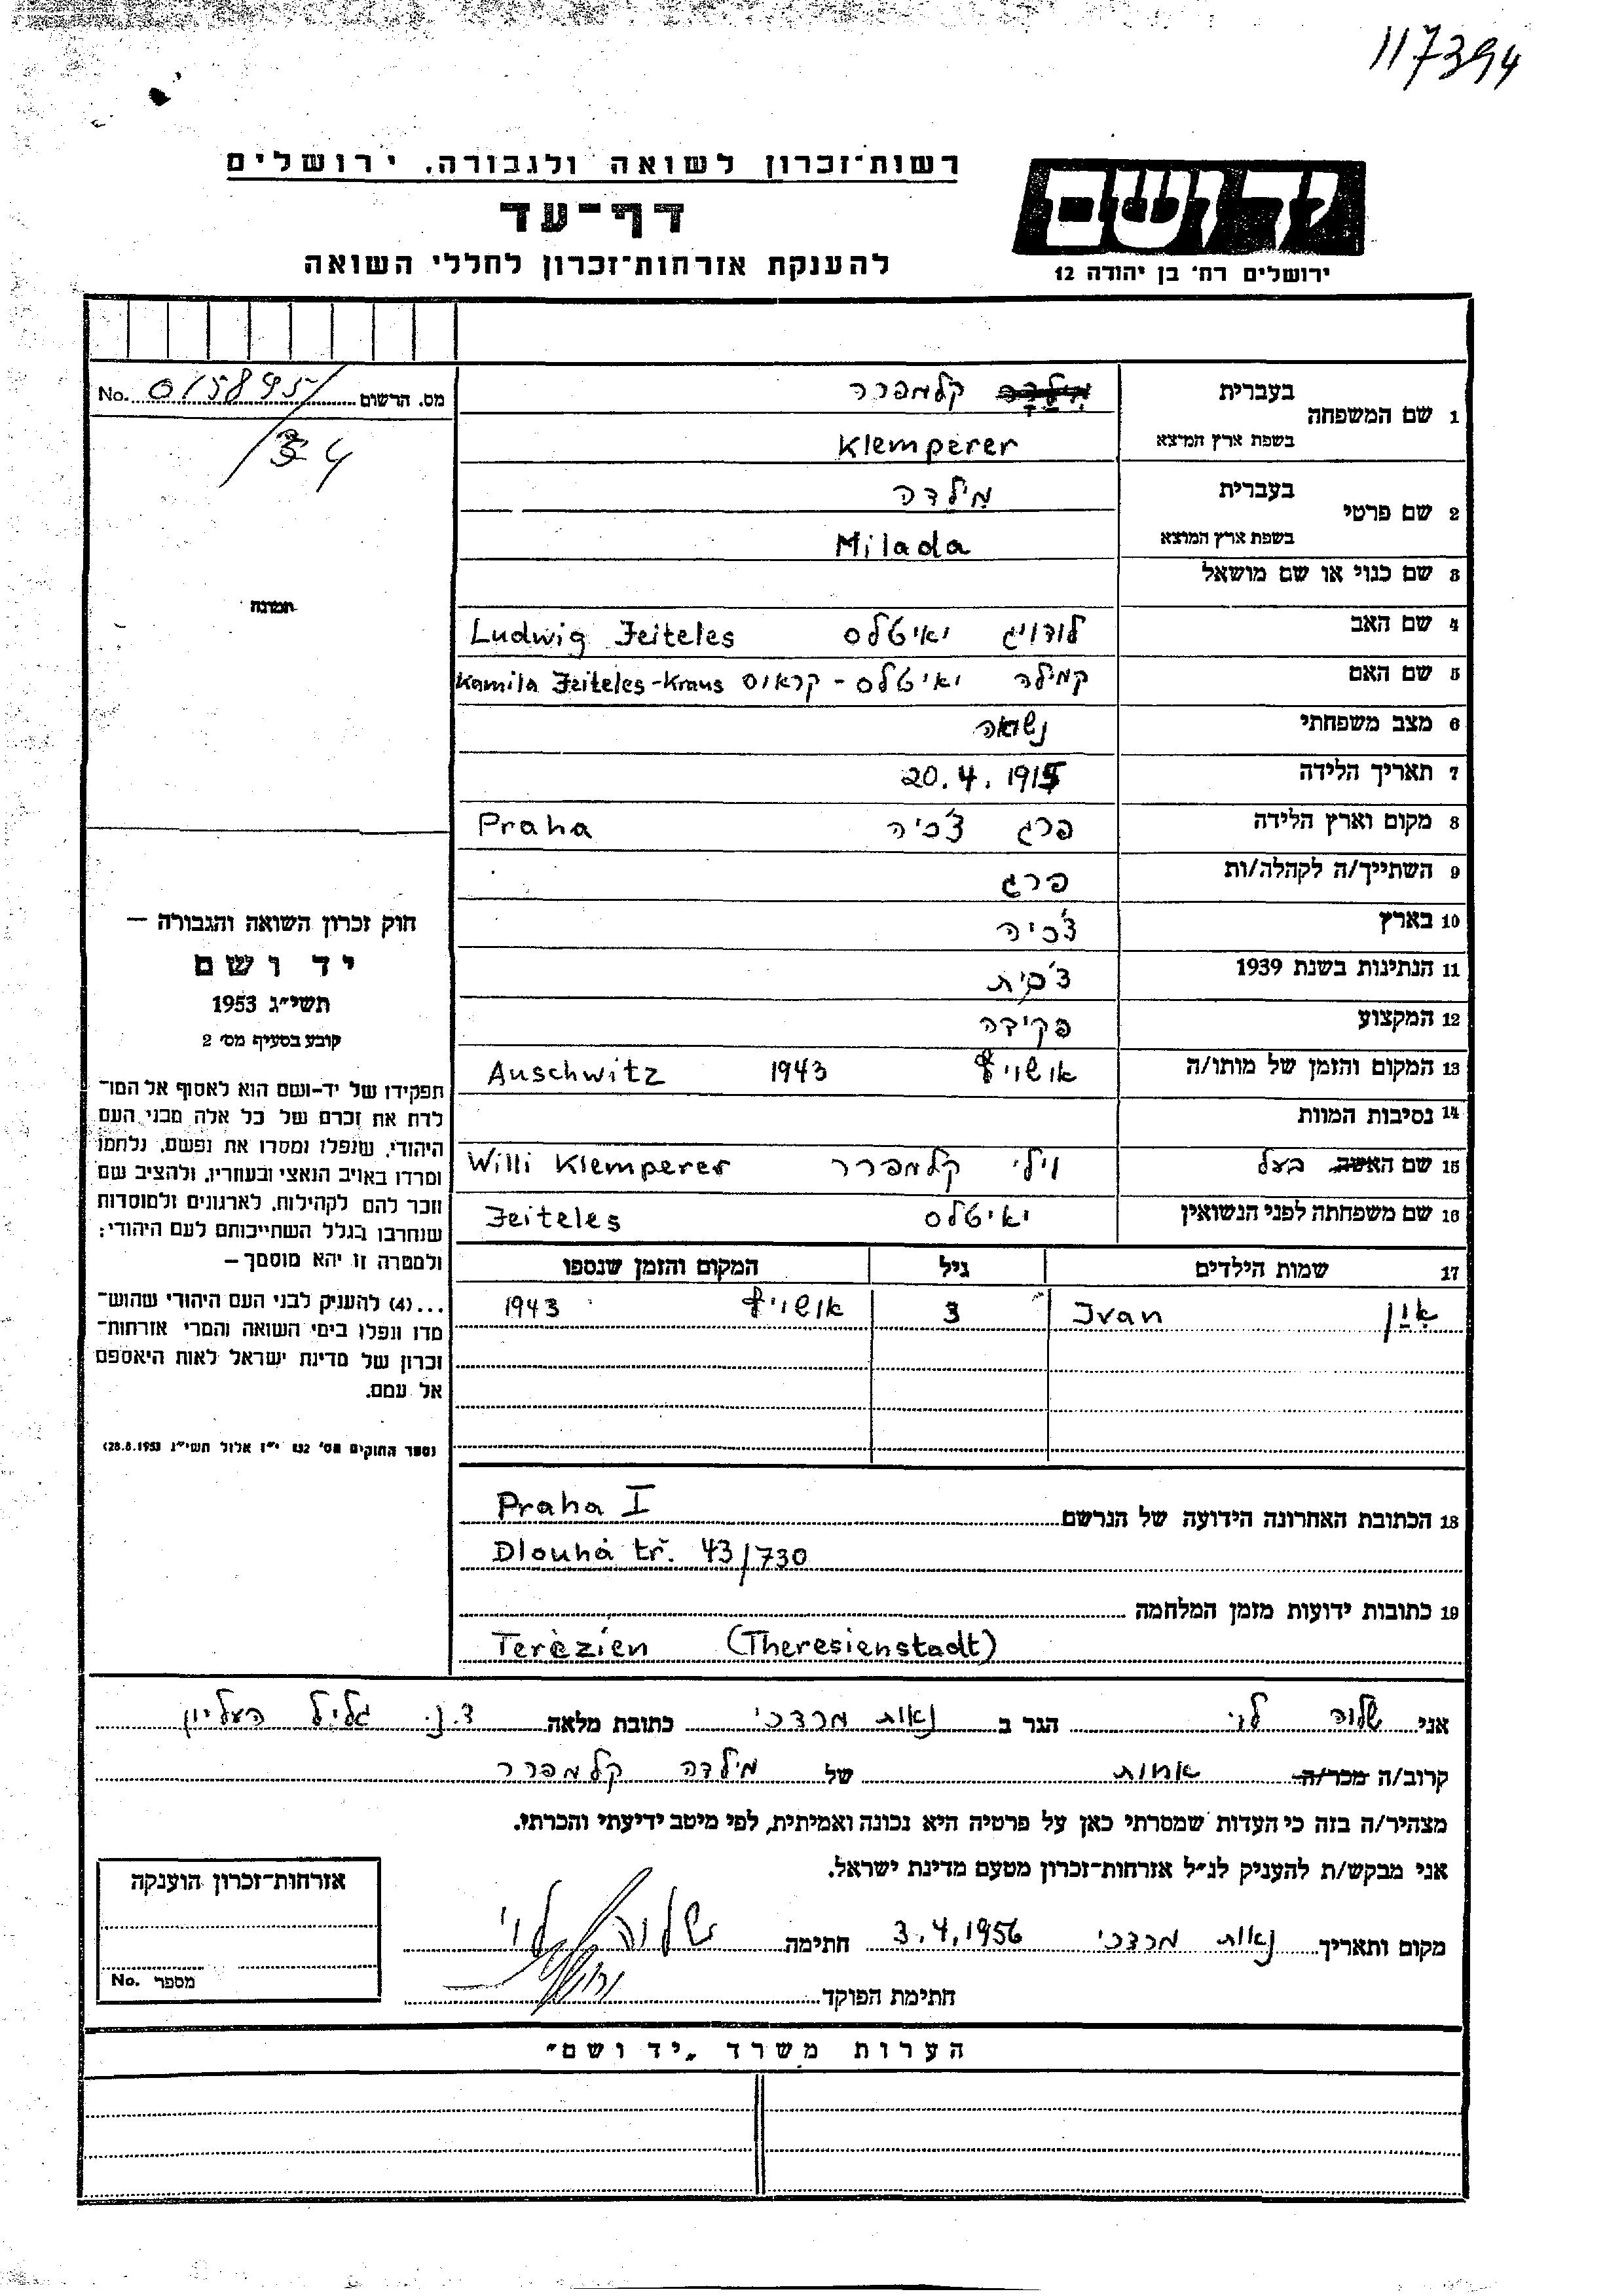 117394
רשות־זכרון לשואה ולגבורה, ירושלים
יד ושם
דף־עד
להענקת אזרחות־זכרון לחללי השואה
ירושלים רח' בן יהודה 12
מס. הרשום No. 015895
34
תמונה
1 שם המשפחה בעברית קלמפרר
בשפת ארץ המוצא Klemperer
2 שם פרטי בעברית מילדה
בשפת ארץ המוצא Milada
3 שם כנוי או שם מושאל
4 שם האב לודויג יאיטלס Ludwig Jeiteles
5 שם האם קמילה יאיטלס - קראוס Kamila Jeiteles-Kraus
6 מצב משפחתי נשואה
7 תאריך הלידה 20.4.1915
8 מקום וארץ הלידה פרג צ'כיה Praha
9 השתייך/ה לקהלה/ות פרג
10 בארץ צ'כיה
11 הנתינות בשנת 1939 צ'כית
12 המקצוע פקידה
13 המקום והזמן של מותו/ה אושויץ 1943 Auschwitz
14 נסיבות המוות
15 שם האשה בעל וילי קלמפרר Willi Klemperer
16 שם משפחתה לפני הנשואין יאיטלס Jeiteles
17 שמות הילדים גיל המקום והזמן שנספו
אִיוַן Ivan 3 אושויץ 1943
18 הכתובת האחרונה הידועה של הנרשם Praha I
Dlouhá tř. 43/730
19 כתובות ידועות מזמן המלחמה
Terezien (Theresienstadt)
חוק זכרון השואה והגבורה –
יד ושם
תשי״ג 1953
קובע בסעיף מס' 2
תפקידו של יד-ושם הוא לאסוף אל המו־
לדת את זכרם של כל אלה מבני העם
היהודי, שנפלו ומסרו את נפשם, נלחמו
ומרדו באויב הנאצי ובעוזריו, ולהציב שם
וזכר להם לקהילות, לארגונים ולמוסדות
שנחרבו בגלל השתייכותם לעם היהודי;
ולמטרה זו יהא מוסמך –
...(4) להעניק לבני העם היהודי שהוש־
מדו ונפלו בימי השואה והמרי אזרחות־
זכרון של מדינת ישראל לאות היאספם
אל עמם.
(ספר החוקים מס' 132 י״ז אלול תשי״ג 28.8.1953)
אני שלוה לוי הגר ב נאות מרדכי כתובת מלאה ד.נ. גליל העליון
קרוב/ה מכר/ה אחות של מילדה קלמפרר
מצהיר/ה בזה כי העדות שמסרתי כאן על פרטיה היא נכונה ואמיתית, לפי מיטב ידיעתי והכרתי.
אני מבקש/ת להעניק לנ״ל אזרחות־זכרון מטעם מדינת ישראל.
מקום ותאריך נאות מרדכי 3.4.1956 חתימה שלוה לוי
חתימת הפוקד
אזרחות־זכרון הוענקה
מספר No.
הערות משרד „יד ושם״